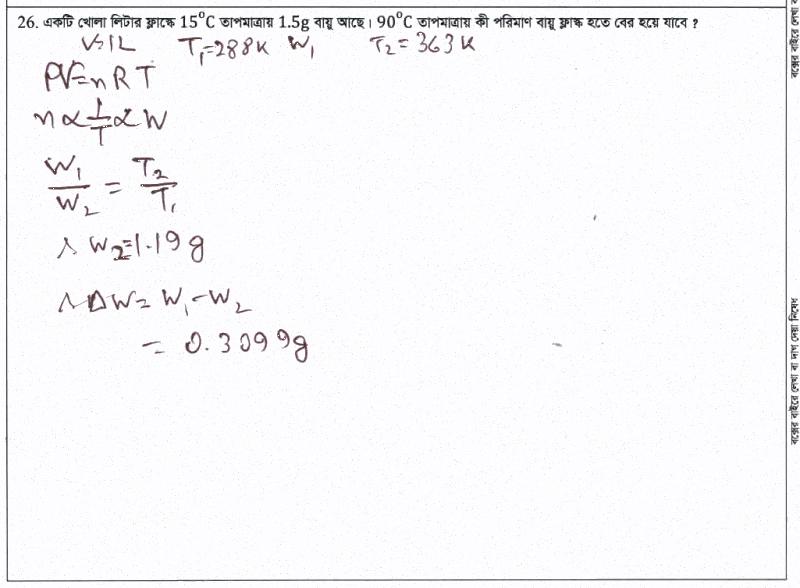 26. একটি খোলা লিটার ফ্লাস্কে 15°C তাপমাত্রায় 1.5g বায়ু আছে। 90°C তাপমাত্রায় কী পরিমাণ বায়ু ফ্লাস্ক হতে বের হয়ে যাবে ?
V=1L T₁=288K W₁ T₂=363K
PV=nRT
n∝1/T∝W
W₁/W₂ = T₂/T₁
∴ W₂=1.19g
∴ ΔW= W₁-W₂
= 0.3099g
বক্সের বাইরে লেখা বা দাগ দেয়া নিষেধ